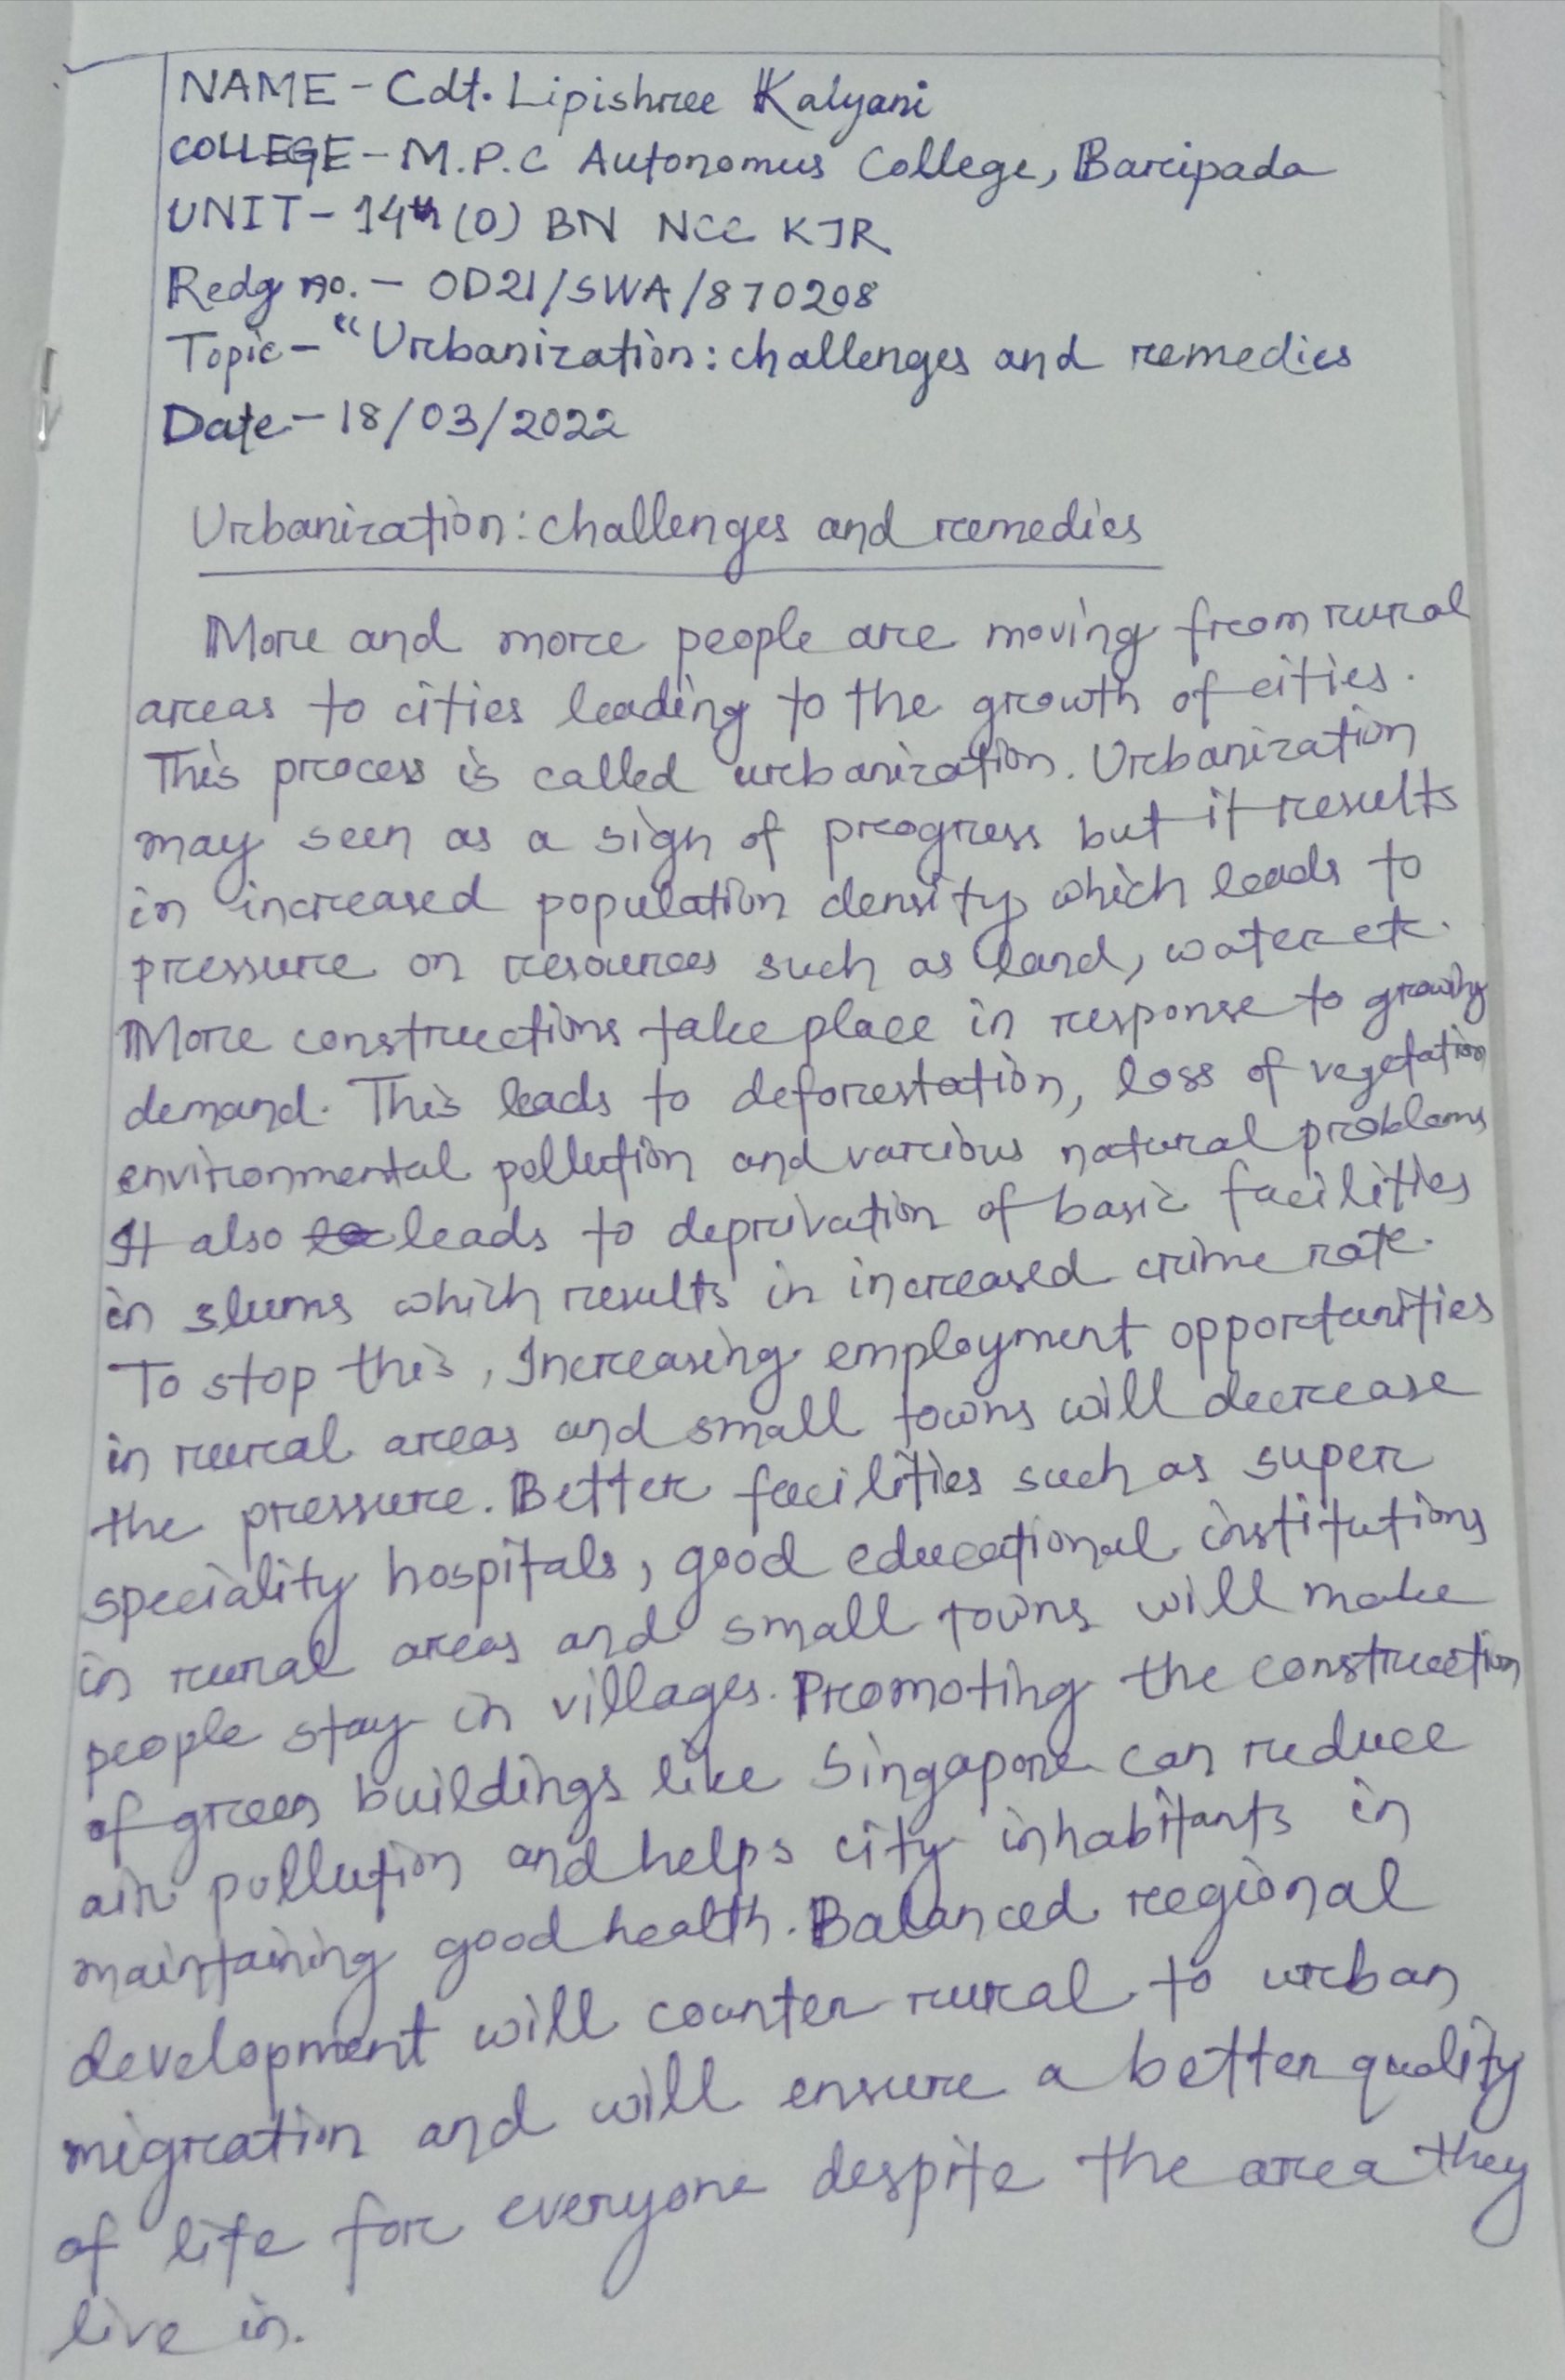 NAME - Cdt. Lipishree Kalyani
COLLEGE - M.P.C Autonomus College, Baripada
UNIT - 14th (O) BN NCC KJR
Redg no. - OD21/SWA/870208
Topic - "Urbanization: challenges and remedies
Date - 18/03/2022
Urbanization: challenges and remedies
More and more people are moving from rural
areas to cities leading to the growth of cities.
This process is called urbanization. Urbanization
may seen as a sign of progress but it results
in increased population density which leads to
pressure on resources such as land, water etc.
More constructions take place in response to growing
demand. This leads to deforestation, loss of vegetation
environmental pollution and various natural problems
It also leads to deprivation of basic facilities
in slums which results in increased crime rate.
To stop this, Increasing employment opportunities
in rural areas and small towns will decrease
the pressure. Better facilities such as super
speciality hospitals, good educational institutions
in rural areas and small towns will make
people stay in villages. Promoting the construction
of green buildings like Singapore can reduce
air pollution and helps city inhabitants in
maintaining good health. Balanced regional
development will counter rural to urban
migration and will ensure a better quality
of life for everyone despite the area they
live in.